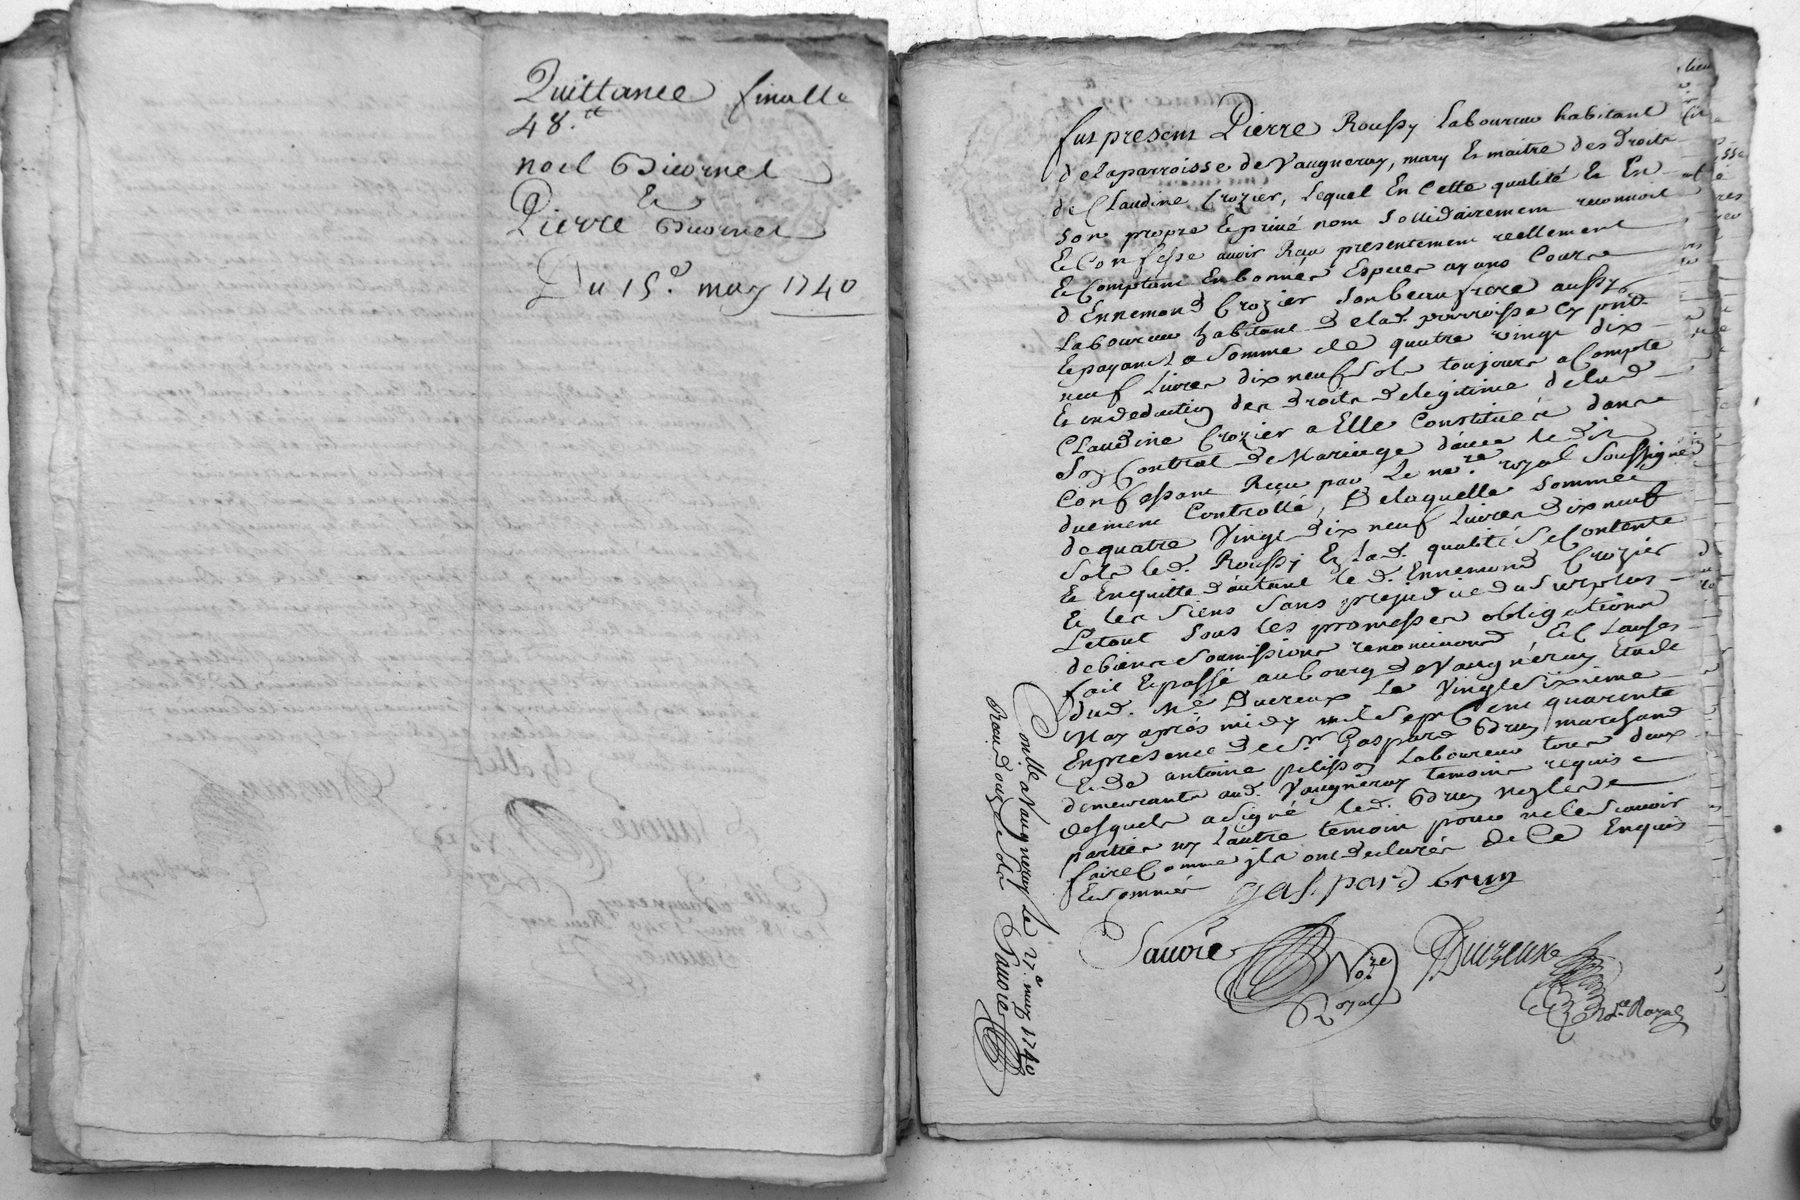 Quittance finalle
48.tt
noel Bicornet
Et
Pierre Bicornet
Du 15.e may 1740
fut present Pierre Roussy Laboureur habitant
de la parroisse de Vaugneray, mary Et maitre des droits
de Claudine Crozier, Lequel En Cette qualité Et En
son propre Et privé nom Sollidairement reconnoit
Et Confesse avoir Reçu presentement reellement
Et Comptant En bonnes Especes ayans Cours
d'Ennemond Crozier Son beau frere aussy
Laboureur habitant de lad. parroisse cy pnt.
Et payant La Somme de quatre vingt dix
neuf Livres dix neuf Sols toujours a Compte
Et en deduction des droits de legitime de lad.
Claudine Crozier a Elle Constitués dans
Son Contrat de Mariage d'avec le dit
Confessant Reçu par Le no.re royal Soussigné
duement Controllé, De laquelle Somme
de quatre Vingt dix neuf Livres dix neuf
Sols led. Roussy En lad. qualité Se Contente
Et En quitte d'autant led. Ennemond Crozier
Et les Siens Sans prejudice du Surplus
Le tout Sous Les promesses obligations
de biens Soumissions renonciations Et Clauses
fait Et passé au bourg de Vaugneray Etude
dud. Me Ducreux Le Vingt Sixieme
May après midy mil Sept Cent quarente
En presence de Sr Gaspard Brun marchand
Et de antoine pelisson Laboureur tous deux
demeurants aud. Vaugneray temoins requis
desquels a Signé led. Brun non les
parties ny L'autre temoin pour ne le Scavoir
faire Comme ils ont declarés de Ce Enquis
Et Sommés gaspard brun
Sauvre
No.re
Royal
Ducreux
No.re Royal
Con.llé a Vaugneray le 27.e may 1740
Reçu douze Sols Sauvre